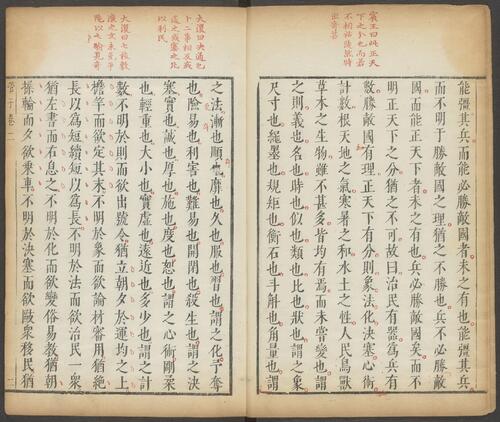 賓王曰此正天
能彊其兵而能必勝敵國者未之有也能彊其兵
而不明于勝敵國之理猶之不勝也兵不必勝敵
國而能正天下者未之有也兵必勝敵國矣而不
明正天下之分猶之不可故曰治民有器爲兵有
數勝敵國有理正天下有分則象法化決塞心術
計數根天地之氣寒暑之和水土之性人民鳥獸
草木之生物雖不甚多皆均有焉而未嘗變也謂
之則義也名也時也似也類也比也狀也謂之象
尺寸也繩墨也規矩也衡石也斗斛也角量也謂
大復曰決通也
二事相反或
通之或塞之此
以利民
之法漸也順也靡也久也服也習也謂之化予奪
也險易也利害也難易也開閉也殺生也謂之決
塞實也誠也厚也施也度也恕也謂之心術剛柔
也輕重也大小也實虛也遠近也多少也謂之計
大復曰七
數不明於則而欲出號令猶立朝夕於運均之上
檐竿而欲定其末不明於象而欲論材審用猶絶
長以為短續短以為長不明於法而欲治民一衆
猶左書而右息之不明於化而欲變俗易教猶朝
揉輪而夕欲乘車不明於決塞而欲敺衆移民猶
管子卷二